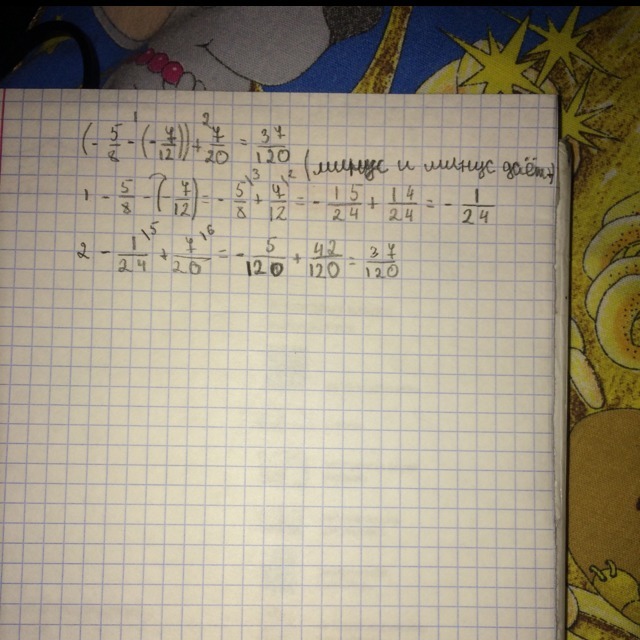 1 2
(-5/8-(-7/12))+7/20=37/120 (минус и минус даёт)
1 -5/8-(-7/12)=-5/8³+7/12²=-15/24+14/24=-1/24
2 -1/24⁵+7/20⁶=-5/120+42/120=37/120